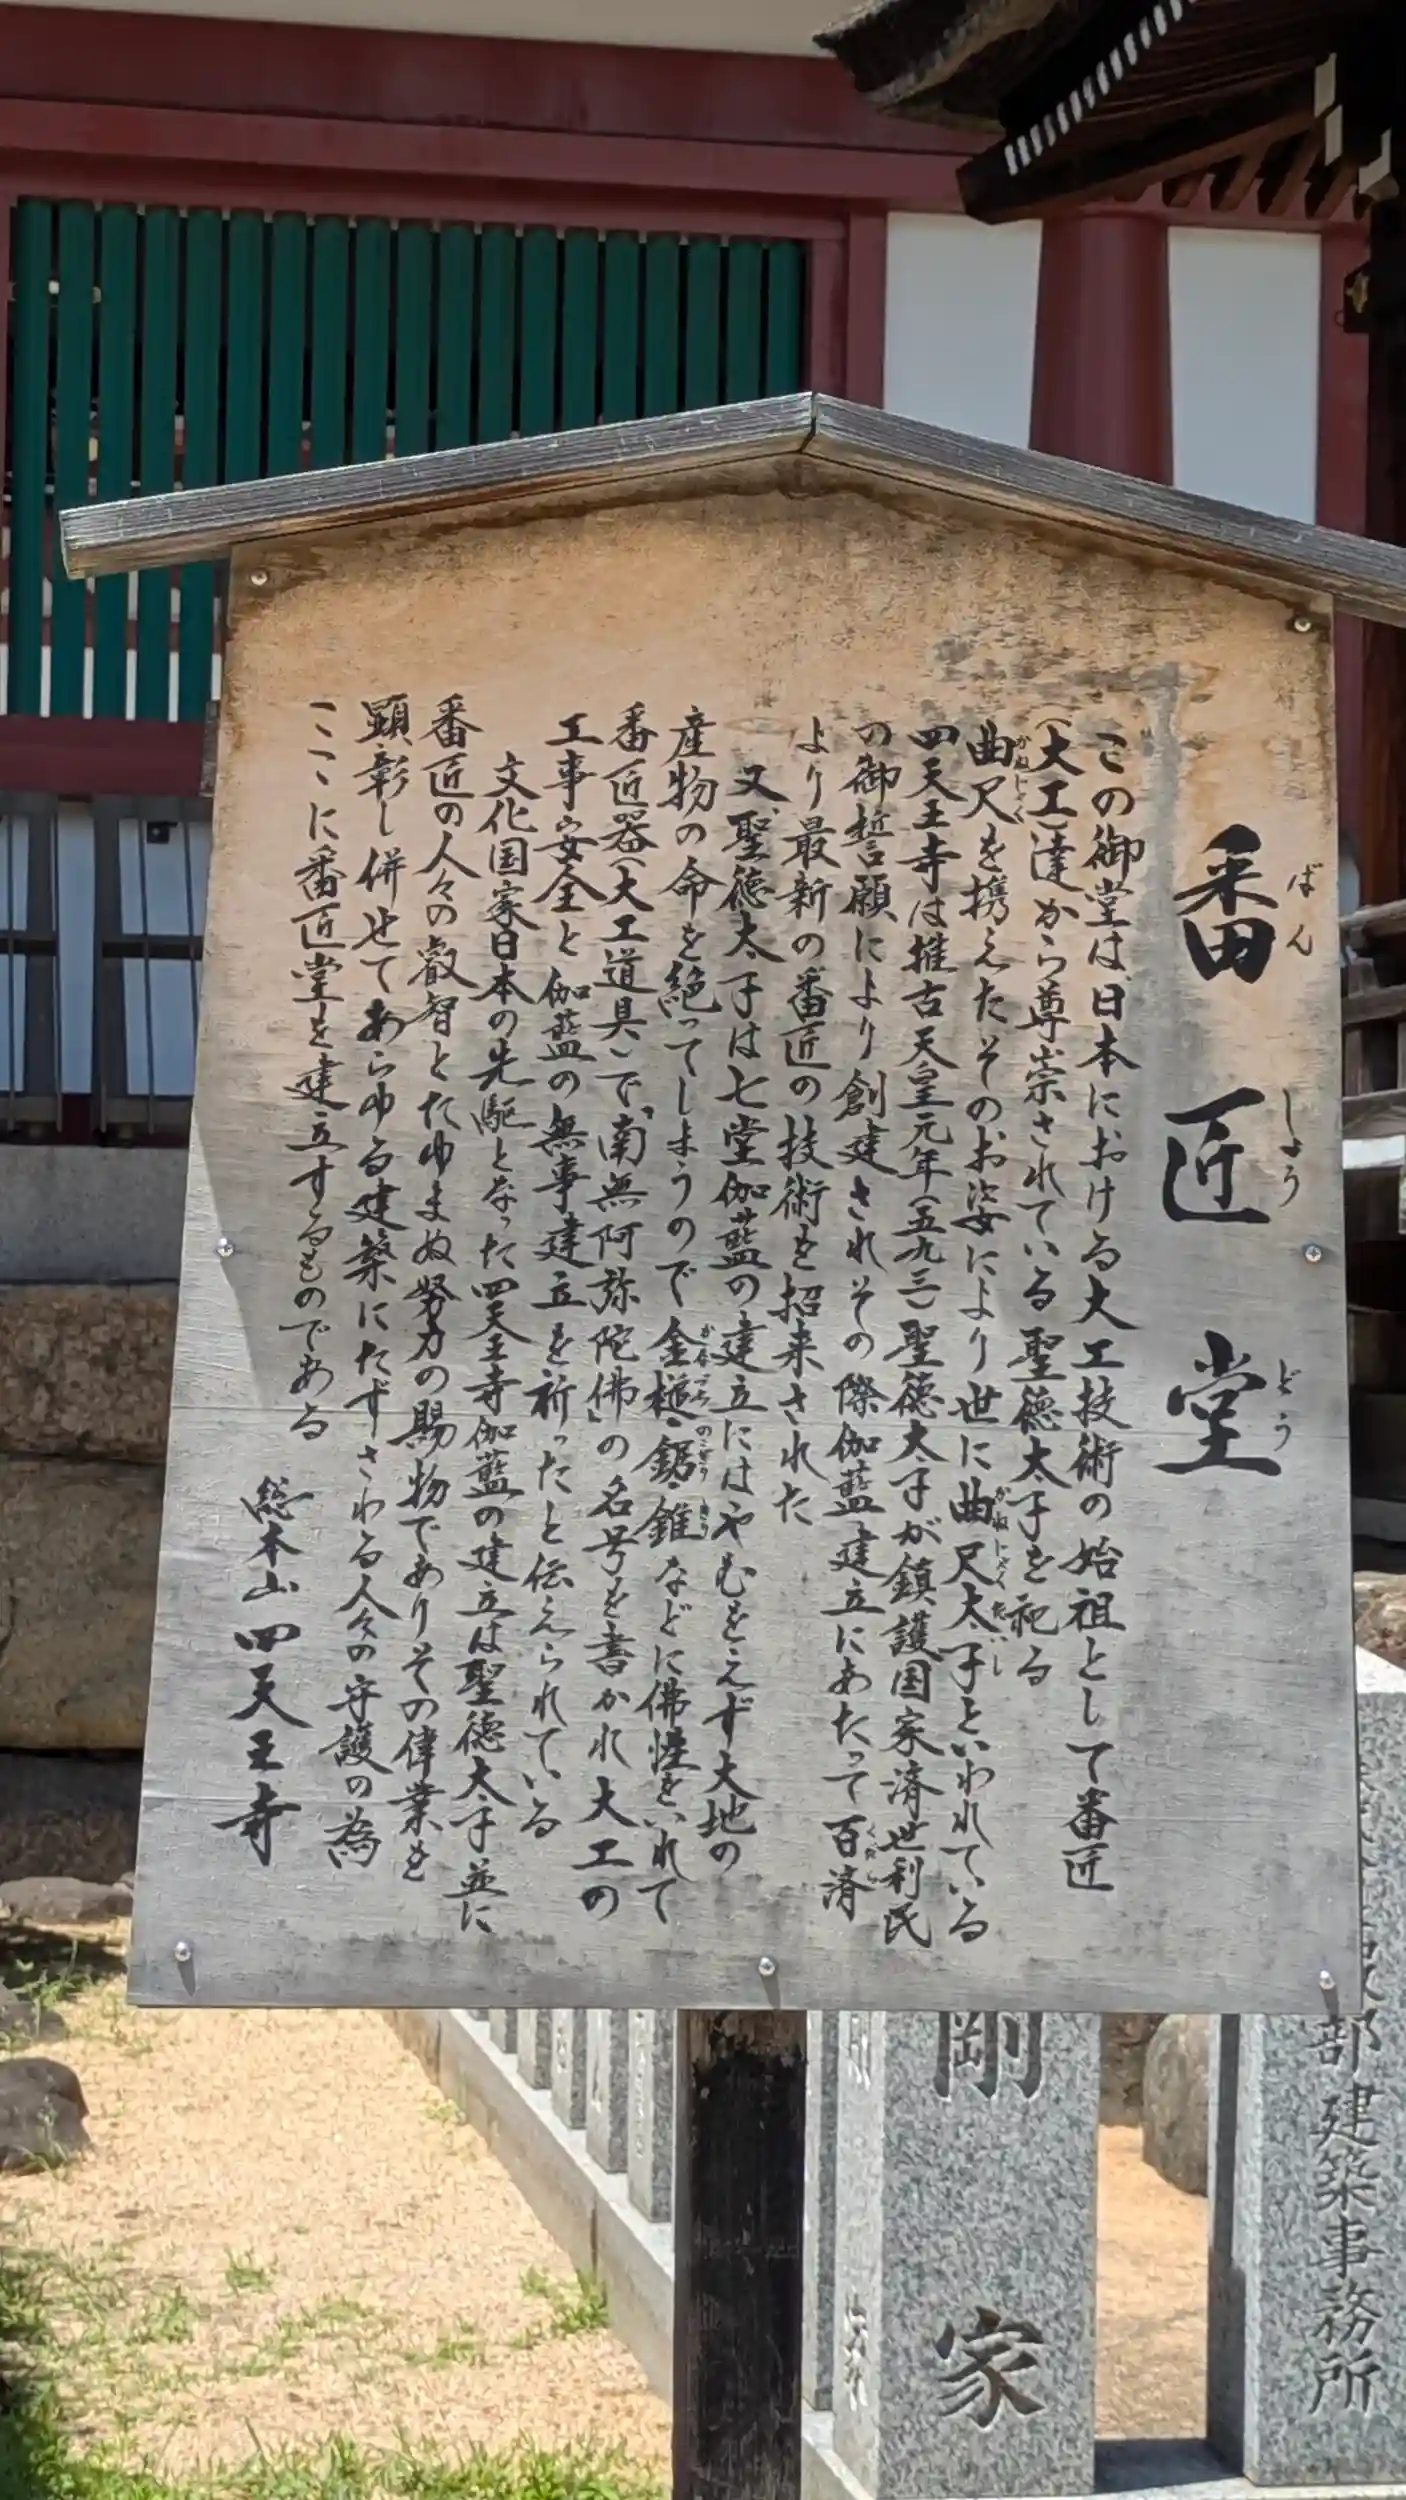 番匠堂
ばんしょうどう
この御堂は、日本における大工技術の始祖として番匠
(大工)達から尊崇されている聖徳太子を祀る
曲尺を携えたそのお姿により世に曲尺太子といわれている
かねじゃく
かねじゃくたいし
四天王寺は推古天皇元年(五九三)聖徳太子が鎮護国家済世利民
の御誓願により創建されその際伽藍建立にあたって百済
くだら
より最新の番匠の技術を招来された
又、聖徳太子は七堂伽藍の建立にはやむをえず大地の
産物の命を絶ってしまうので金槌・鋸・錐などに佛性をいれて
かなづち のこぎり きり
番匠器(大工道具)で「南無阿弥陀佛」の名号を書かれ大工の
工事安全と伽藍の無事建立を祈ったと伝えられている
文化国家日本の先駆となった四天王寺伽藍の建立は聖徳太子並に
番匠の人々の叡智とたゆまぬ努力の賜物でありその偉業を
顕彰し併せてあらゆる建築にたずさわる人々の守護の為
ここに番匠堂を建立するものである
総本山四天王寺
剛家
部建築事務所